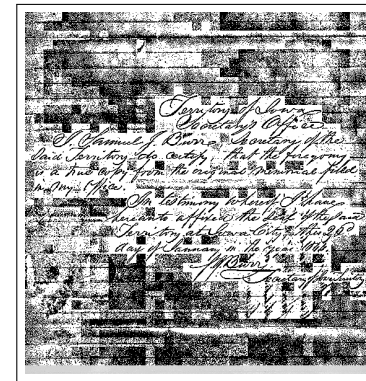 Territory of Iowa
Secretary's Office
I, Samuel J. Burr Secretary of the
Said Territory do certify, that the foregoing
is a true copy from the original memorial filed
in my Office.
In testimony whereof I have
hereunto affixed the Seal of the said
Territory at Iowa City this 26th
day of January in the year
Burr
Secretary